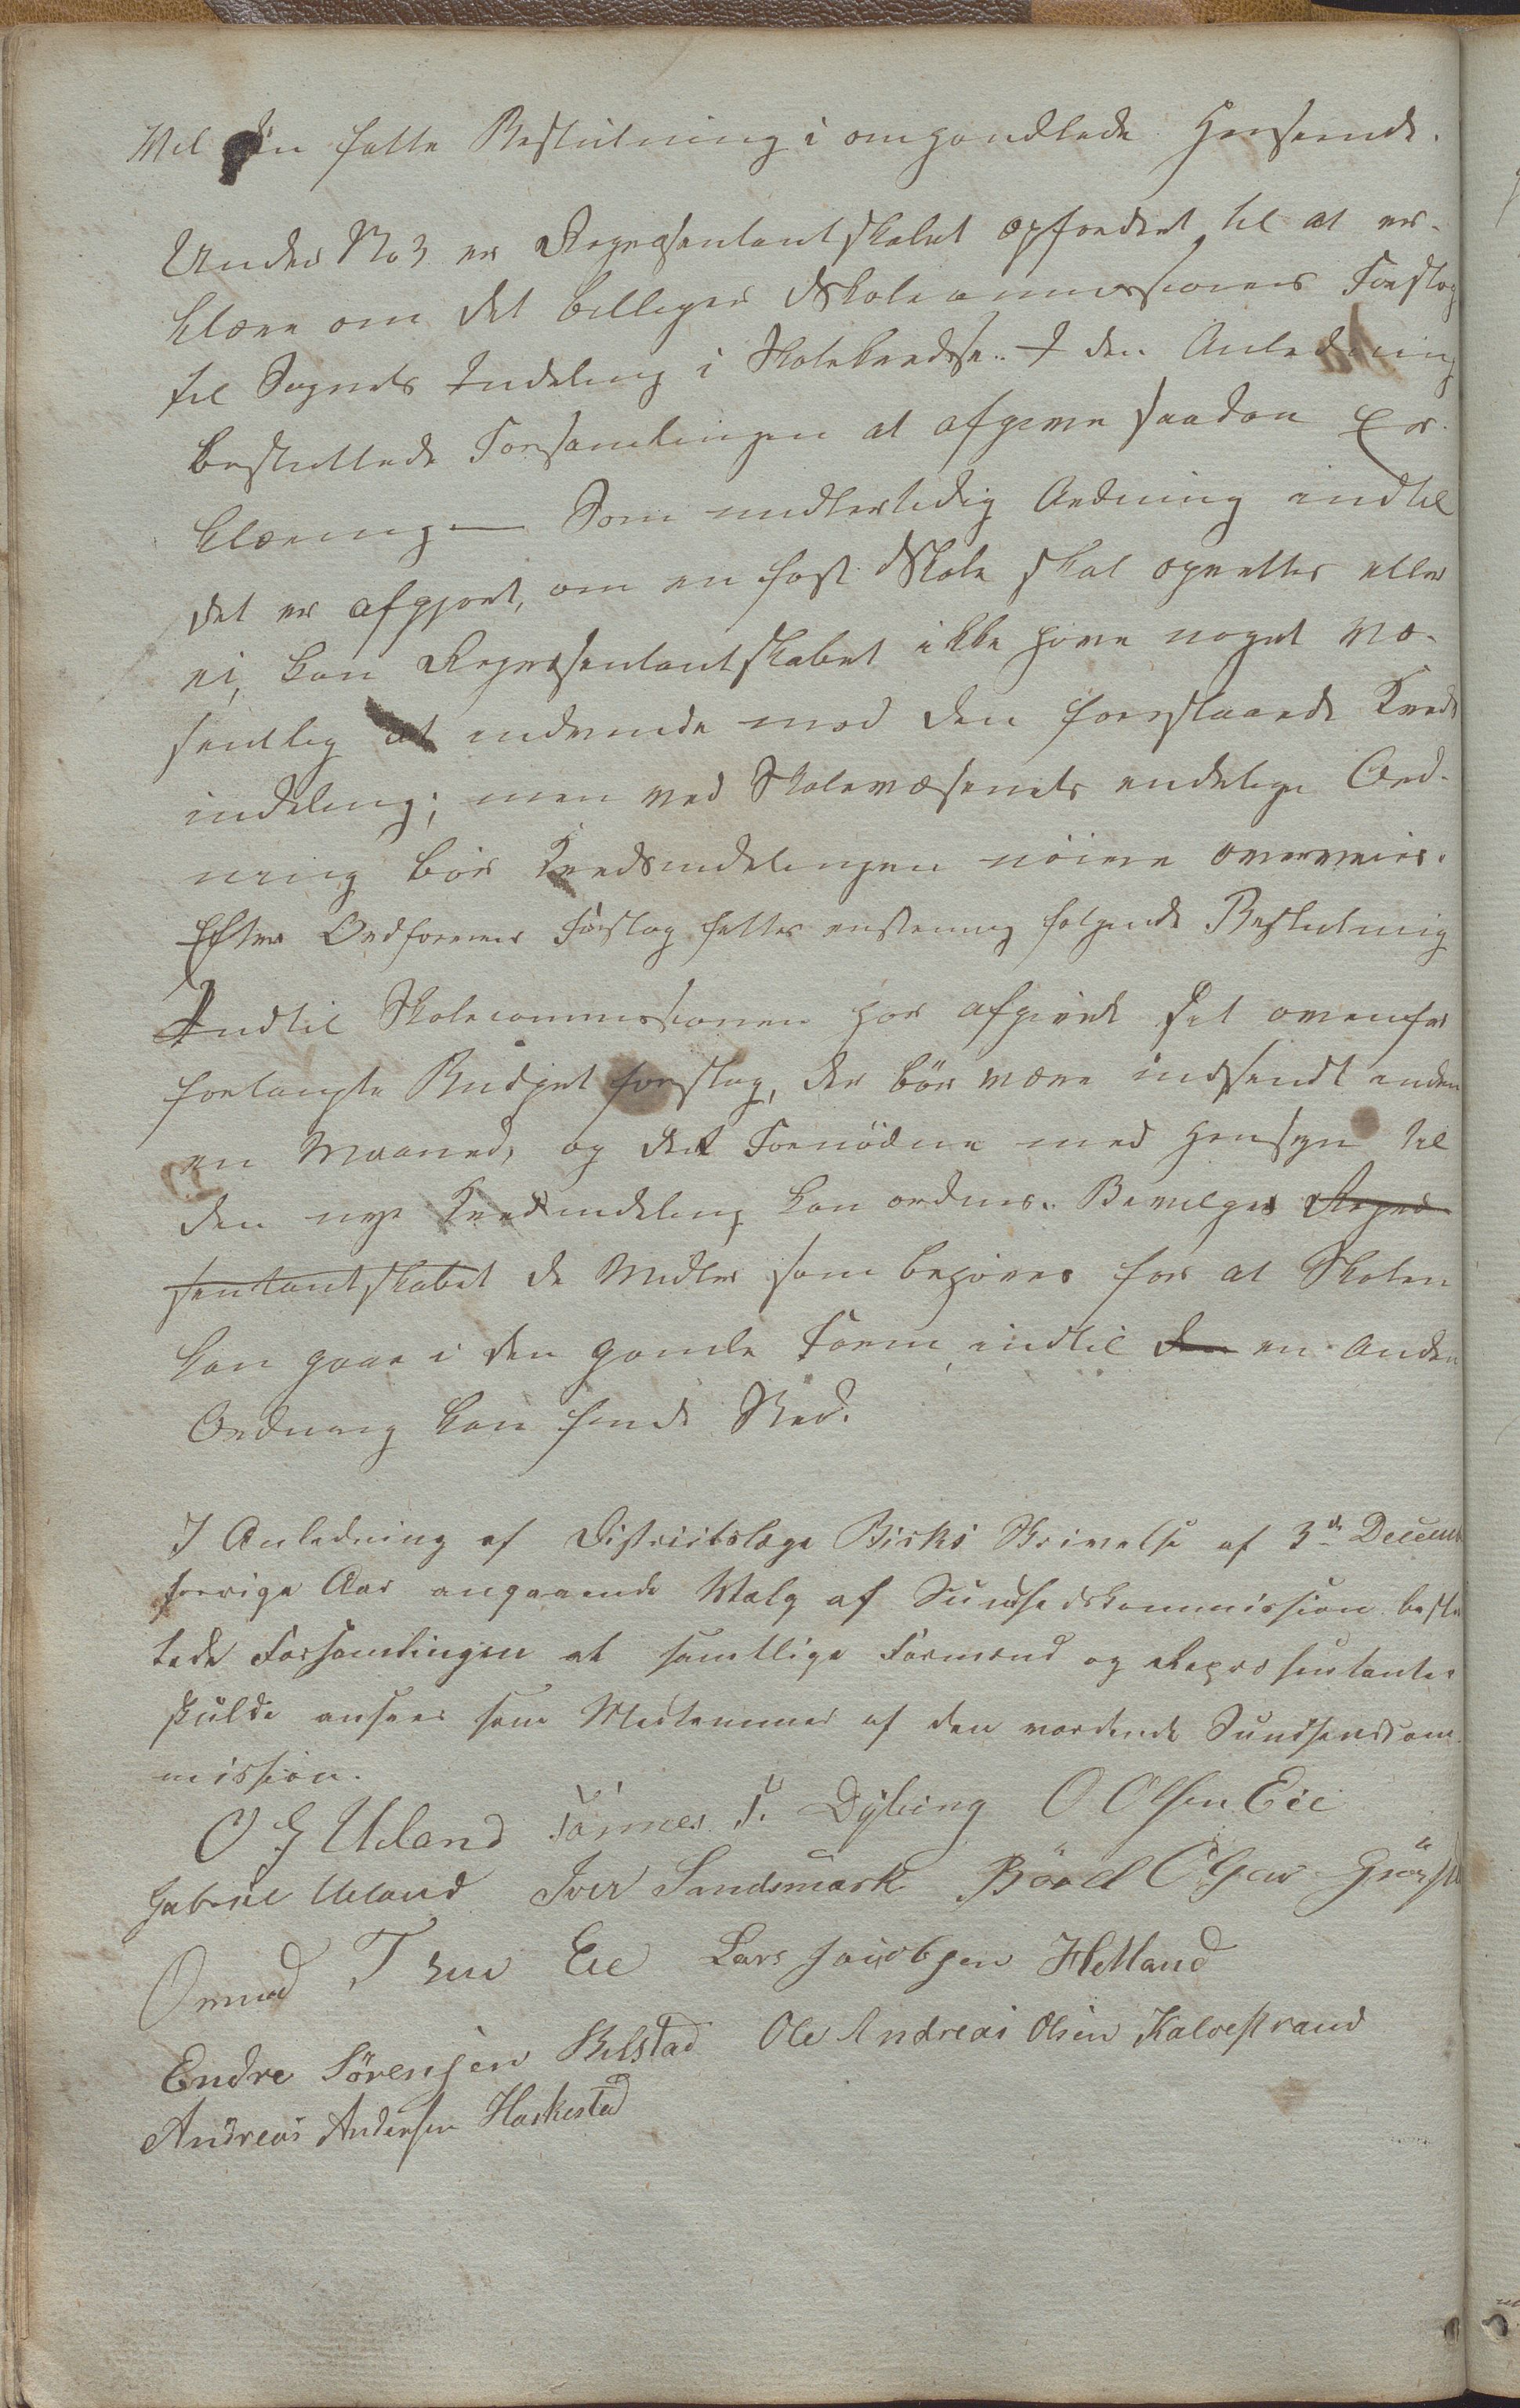 Vil den fatte Beslutning i omhandlede Henseende.
Under No 3 er Repræsentantskabet opfordret til at er-
klære om det billiger Skolecommissionens Forslag
til Sognets Inddeling i Skolekredse. I den Anledning
besluttede Forsamlingen at afgive saadan Er-
klæring — Som midlertidig Ordning indtil
det er afgjort, om en fast Skole skal oprettes eller
ei, kan Repræsentantskabet ikke have noget væ-
sentlig at indvende mod den foreslaaede Kreds
inddeling; men ved Skolevæsenets endelige Ord-
ning bör Kredsinddelingen nöiere overveies.
Efter Ordförerens Forslag fattes enstemmig fölgende Beslutning
Indtil Skolecommissionen har afgivet det ovenfor
forlangte Budget forslag, der bör være indsendt inden
en Maaned, og det Fornödne med Hensyn til
den nye Kredsinddeling kan ordnes. Bevilges Repræ
sentantskabet de Midler som behöves for at Skolen
kan gaae i den gamle Form, indtil den en anden
Ordning kan finde Sted.
I Anledning af Distriktslæge Birks Skrivelse af 3de Decemb
forrige Aar angaaende Valg af Sundhedskommission beslu
tede Forsamlingen at samtlige Formænd og Repræsentanter
skulde ansees som Medlemmer af den vordende Sundhedscom-
mission.
O G Ueland Tönnes T. Dybing O Olsen Eie
Gabriel Ueland Iver Sandsmark Bård
Omund Eie Lars Jacobsen Hetland
Endre Sörensen Skelstad Ole Andreas Olsen Kalvestrand
Andreas Andersen Haskested